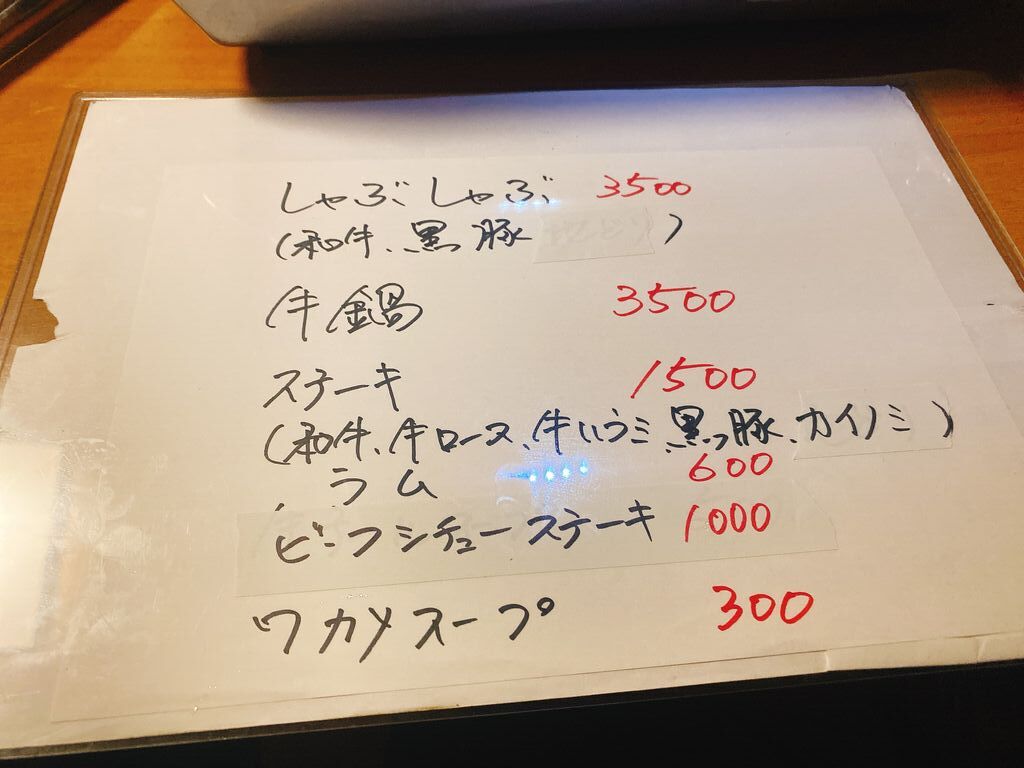 しゃぶしゃぶ 3500
(和牛、黒豚 )
牛鍋 3500
ステーキ 1500
(和牛、牛ロース、牛ハラミ、黒豚、カイノミ)
ラム 600
ビーフシチューステーキ 1000
ワカメスープ 300